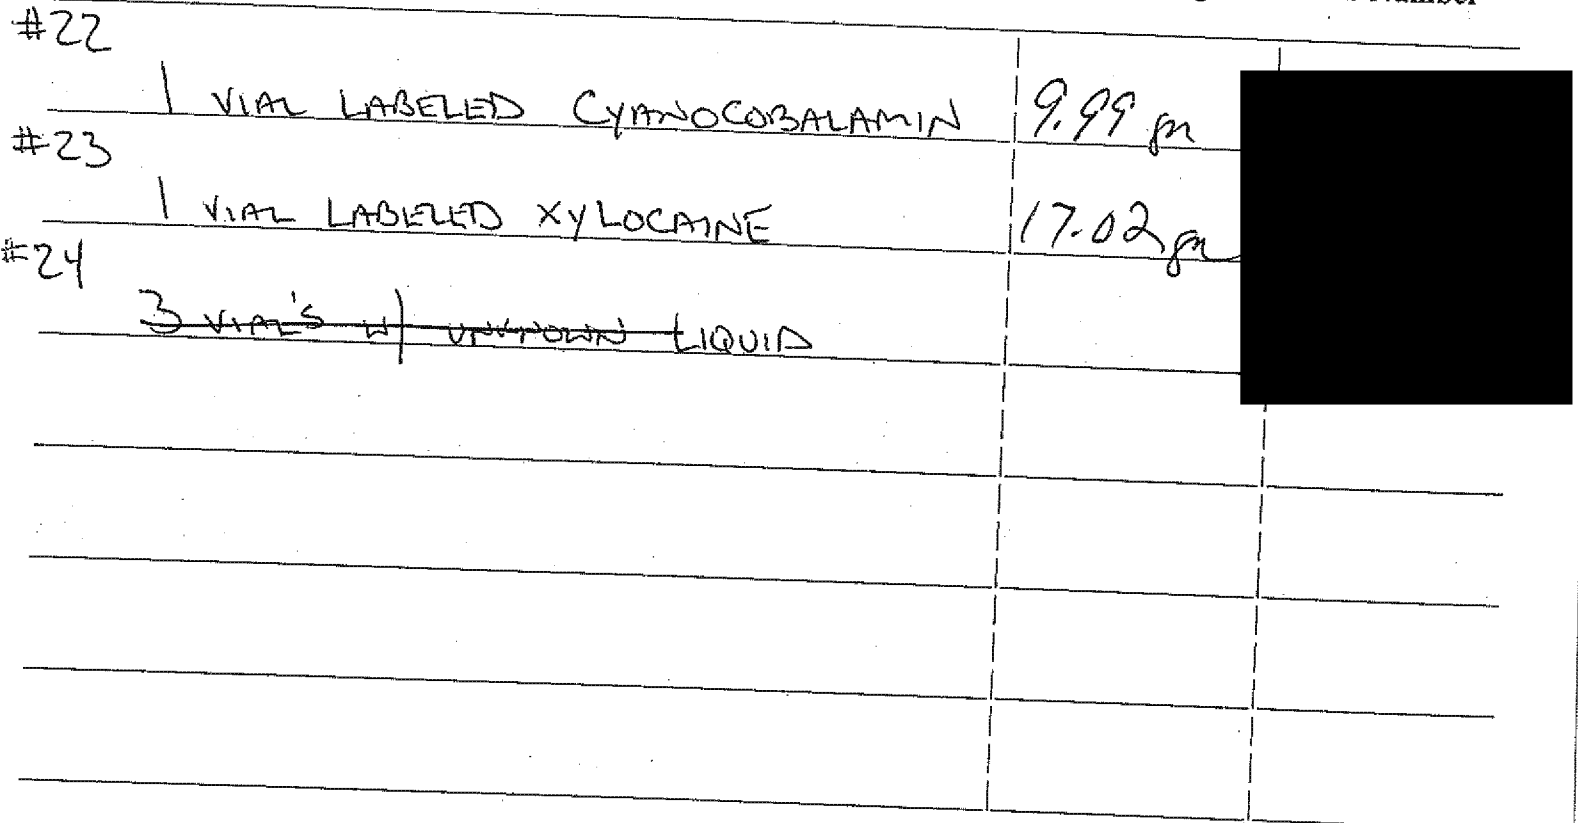 Number
#22
1 VIAL LABELED CYANOCOBALAMIN 9.99 gm
#23
1 VIAL LABELED XYLOCAINE 17.02 gm
#24
3 VIAL'S W/ UNKNOWN LIQUID